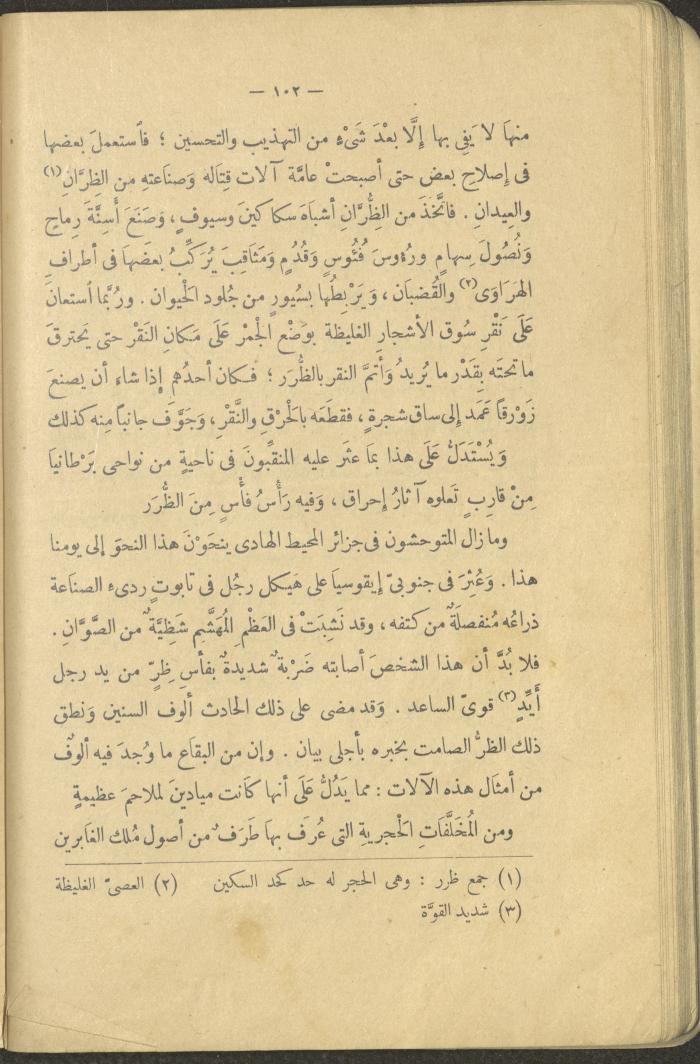 — ١٠٢ —
منهَا لا يَفِى بها إِلَّا بعْدَ شَىْءٍ من التهذيب والتحسين ؛ فٱستعملَ بعضها
فى إصلاحِ بعض حتى أصبحتْ عامَّة آلات قِتَاله وَصنَاعتهِ من الظِرَّانِ (١)
والعِيدانِ . فاتَّخَذَ من الظِّرَّانِ أشباهَ سكاكينَ وسيوفٍ ، وَصَنَعَ أَسِنَّةَ رِماحٍ
وَنُصُولَ سِهامٍ ورُءوسَ فُئُوسٍ وَقُدُمٍ وَمَثَاقِبَ يُرَكِّبُ بعضَهَا فى أطرافِ
الهَرَاوَى (٢) والقُضبَان ، وَيَرْبِطُها بسُيورٍ من جُلود الحيوان . ورُبَّما ٱستعانَ
عَلَى نَقْرِ سُوقِ الأشجارِ الغليظة بوَضْع الجْمْرِ عَلَى مَكانِ النَقْر حتى يَحترقَ
ما تحتَه بِقَدْر ما يُريدُ وَأتمَّ النقر بالظُّرَر ؛ فكان أحدُهم إذا شاء أن يصنعَ
زَوْرقاً عَمَد إلى ساق شجرةٍ ، فقطَعَه بالحَرْقِ والنَّقْرِ ، وَجَوَّف جانباً مِنه كذلك
وَيُسْتَدَلُّ عَلَى هذا بمَا عثَر عليه المنقِّبُونَ فى ناحيةٍ من نواحى بَرْطانيَا
مِنْ قارِبٍ تَعلوه آثارُ إحراق ، وَفيه رَأْسُ فأْسٍ مِنَ الظُّرَر
وما زال المتوحشون فى جزائر المحيط الهادى ينحَوْنَ هذا النحوَ إلى يومنا
هذا . وَعُثِرَ فى جنوبىّ إيقوسيا على هَيكل رجُل فى تابوتٍ ردىء الصناعة
ذراعُه مُنفصلَةٌ من كتفه ، وقد نَشِبَتْ فى العَظْمِ المُهَشَّمِ شَظِيَّةٌ من الصَّوَّانِ .
فلا بُدَّ أن هذا الشخصَ أصابته ضَرْبةٌ شديدةٌ بفأسِ ظِرٍّ من يد رجل
أَيِّدٍ (٣) قوىّ الساعد . وَقد مضى على ذلك الحادث ألوف السنين وَنطق
ذلك الظرُّ الصامت بخبره بأجلى بيان . وإن من البقاع ما وُجدَ فيه ألوفٌ
من أمثال هذه الآلات : مما يَدُلُّ عَلَى أنها كَانت ميادينَ لملاحمَ عظيمةٍ
ومن المُخَلَّفَاتِ الحْجريةِ التى عُرفَ بهَا طَرَفٌ من أصول مُلك الغَابرين
(١) جمع ظرر : وهى الحجر له حد كحد السكين (٢) العصىّ الغليظة
(٣) شديد القوَّة